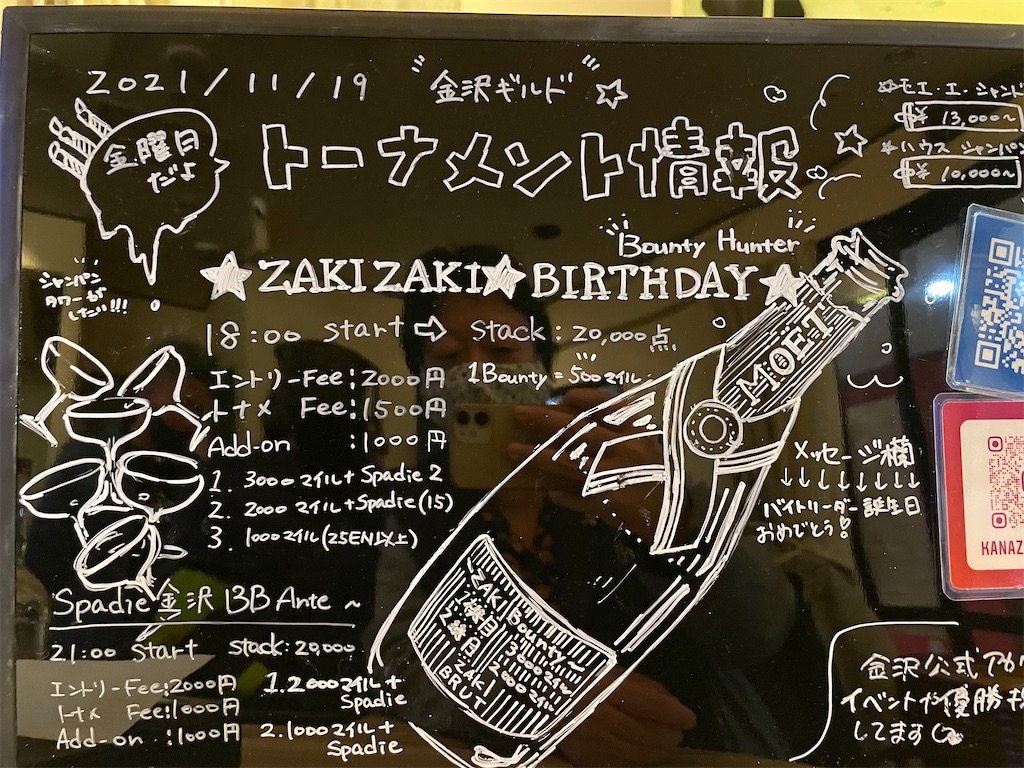 2021/11/19
"金沢ギルド"☆
金曜日
だよ
トーナメント情報
☆モエ・エ・シャンド
¥ 13,000～
☆ハウス シャンパン
¥ 10,000～
シャンパン
タワーが
したい!!!
Bounty Hunter
★ZAKIZAKI★BIRTHDAY★
18:00 start ⇨ Stack: 20,000点
エントリーFee:2000円 1Bounty = 500マイル
トナメ Fee:1500円
Add-on :1000円
1. 3000マイル+Spadie 2
2. 2000マイル+Spadie(15)
3. 1000マイル(25EN以上)
MOET
メッセージ欄
↓↓↓↓↓↓↓
バイトリーダー誕生日
おめでとう!
ZAKI Bounty
1確目 3000マイル
2確目 2000マイル
ZAKI
BRUT
Spadie金沢 BB Ante ～
21:00 start stack:20,000
エントリーFee:2000円
トナメ Fee:1000円
Add-on :1000円
1.2000マイル+
Spadie
2.1000マイル+
Spadie
KANAZ
金沢公式アカ
イベントや優勝
してます